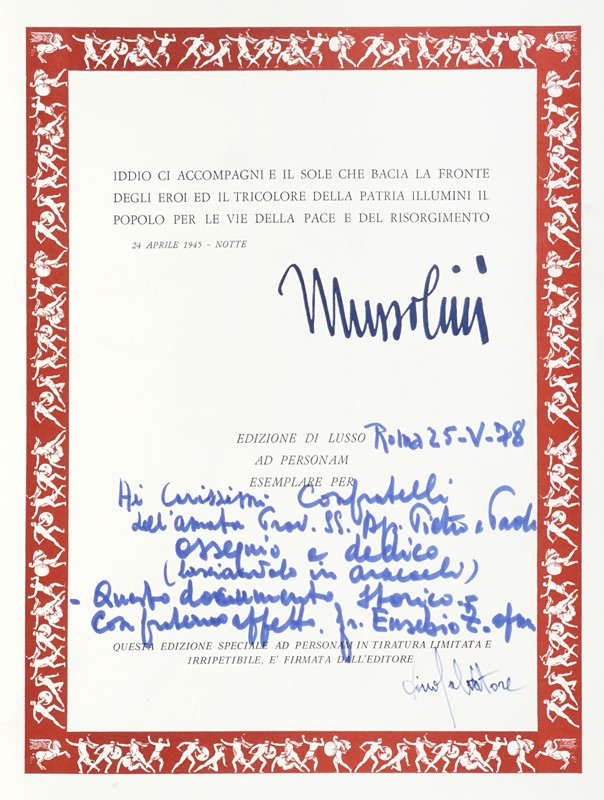 IDDIO CI ACCOMPAGNI E IL SOLE CHE BACIA LA FRONTE
DEGLI EROI ED IL TRICOLORE DELLA PATRIA ILLUMINI IL
POPOLO PER LE VIE DELLA PACE E DEL RISORGIMENTO
24 APRILE 1945 - NOTTE
Mussolini
EDIZIONE DI LUSSO Roma 25-V-78
AD PERSONAM
ESEMPLARE PER
Ai Carissimi Confratelli
dell'amata Prov. SS. Ap. Pietro e Paolo
ossequio e dedico
(lasciandolo in aracoeli)
- Questo documento storico -
Con fraterno affetto. fr. Eusebio Z. ofm
QUESTA EDIZIONE SPECIALE AD PERSONAM IN TIRATURA LIMITATA E
IRRIPETIBILE, E' FIRMATA DALL'EDITORE